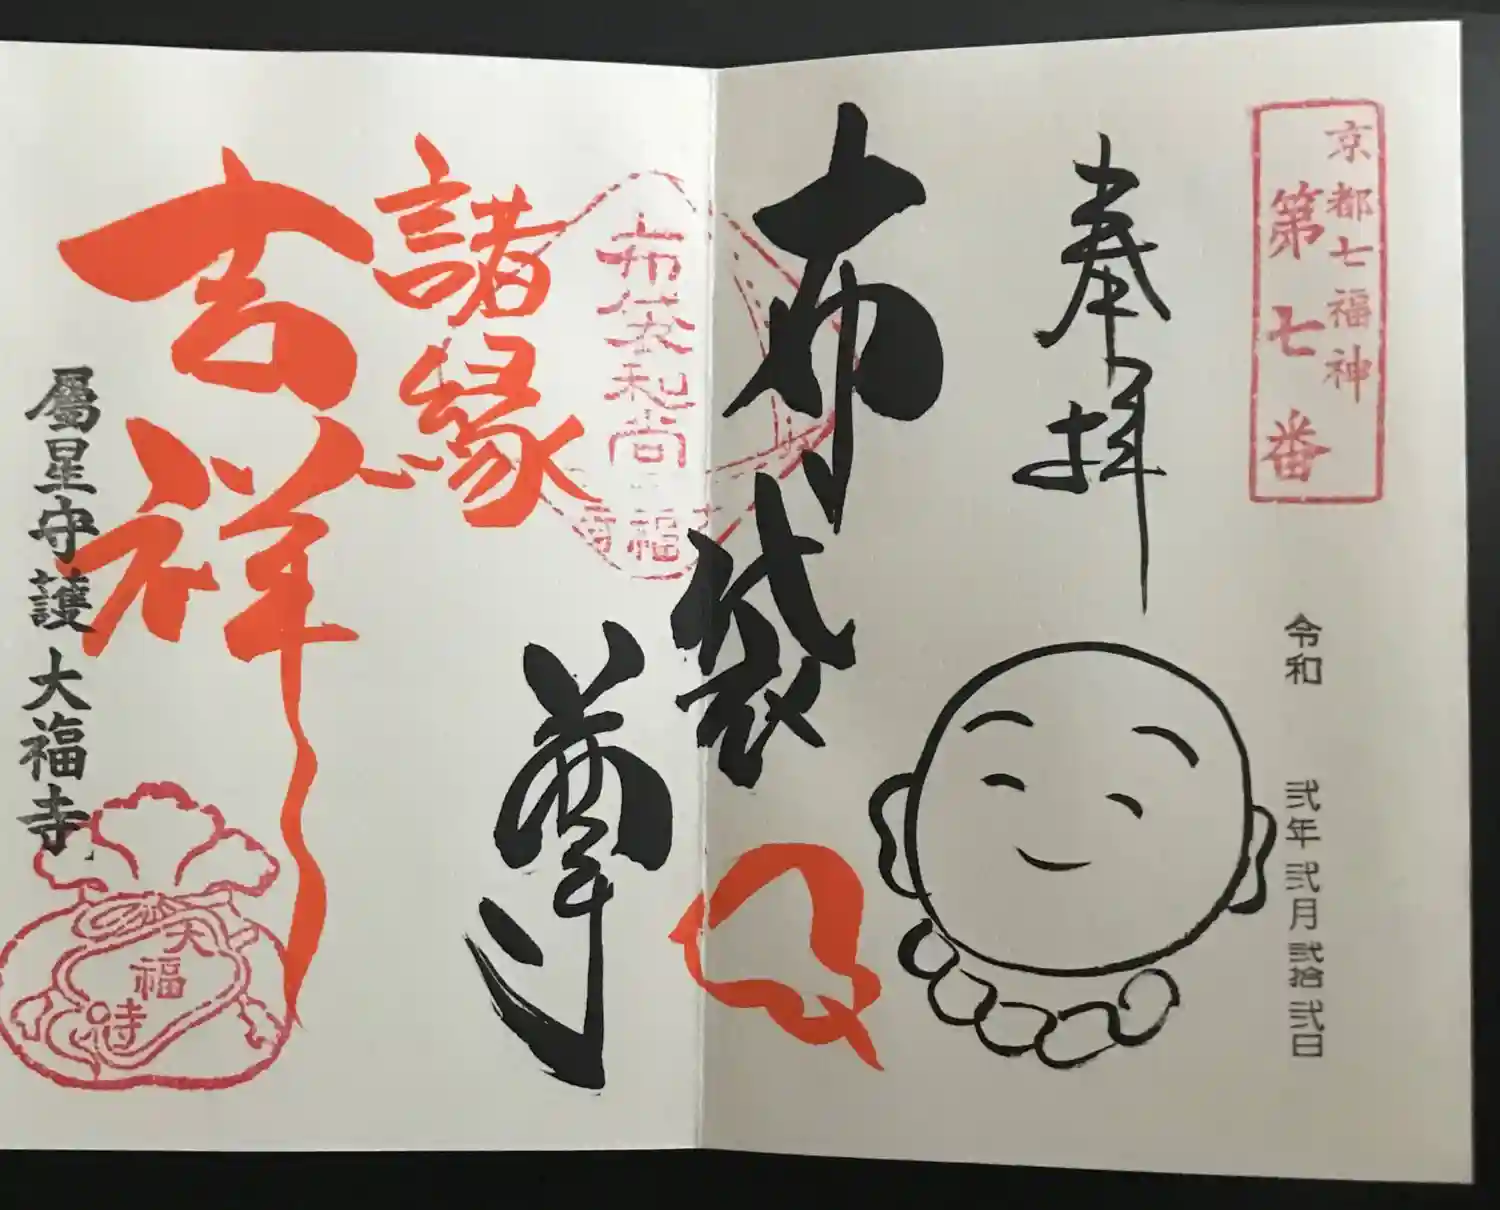 京都七福神
第七番
奉拝
令和 弐年弐月弐拾弐日
布袋尊
布袋和尚
諸縁
吉祥
屬星守護 大福寺
大福寺